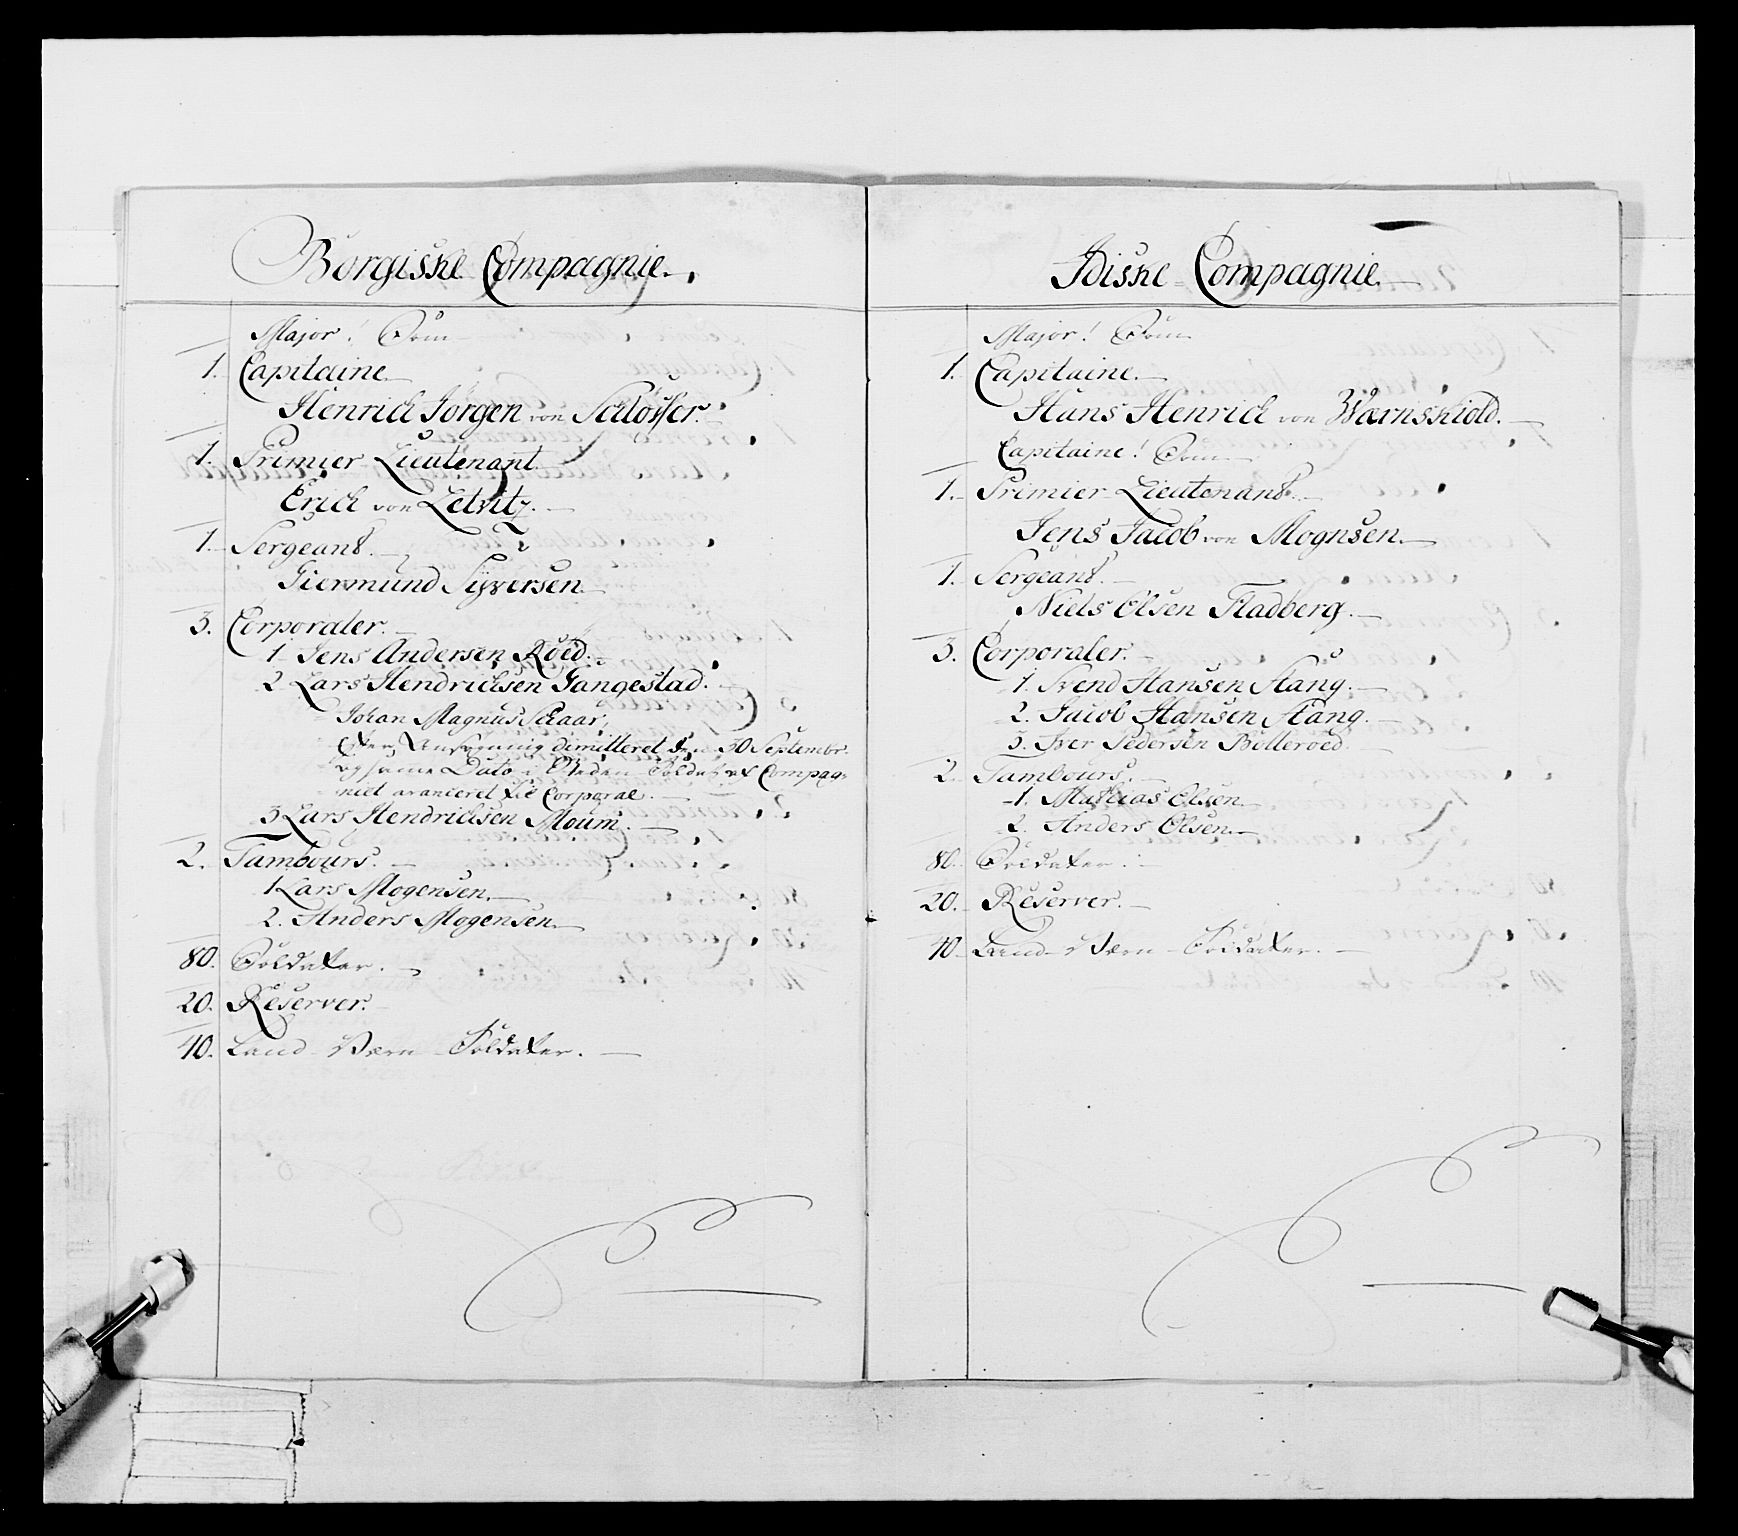 Borgiske Compagnie.
Major!
1. Capitaine
Henrich Jørgen von Schløsser.
1. Primier Lieutenant
Erich von Zetlitz.
1. Sergeant.
Giermund Syversen.
3. Corporaler.
1 Jens Andersen Röed.
2 Lars Hendrichsen Gangestad.
Johan Magnus Schaar,
efter Ansøgning dimitteret den 30 Septembr
og samme Dato i Steden Soldat ved Compag-
niet avanceret til Corporal.
3 Lars Hendrichsen Moüm.
2. Tambours.
1 Lars Mogensen.
2. Anders Mogensen.
80. Soldater.
20. Reserver.
40. Land-Værn-Soldater.
Idiske Compagnie.
Major!
1. Capitaine.
Hans Henrich von Wærnskiold.
Capitaine!
1. Primier Lieutenant.
Jens Jacob von Mognsen.
1. Sergeant.
Niels Olsen Fladberg.
3. Corporaler.
1. Svend Hansen Stang.
2. Jacob Hansen Stang.
3. Iver Pedersen Bölleröed.
2. Tambours.
1. Mathias Olsen.
2. Anders Olsen.
80. Soldater.
20. Reserver.
40. Land-Værn-Soldater.